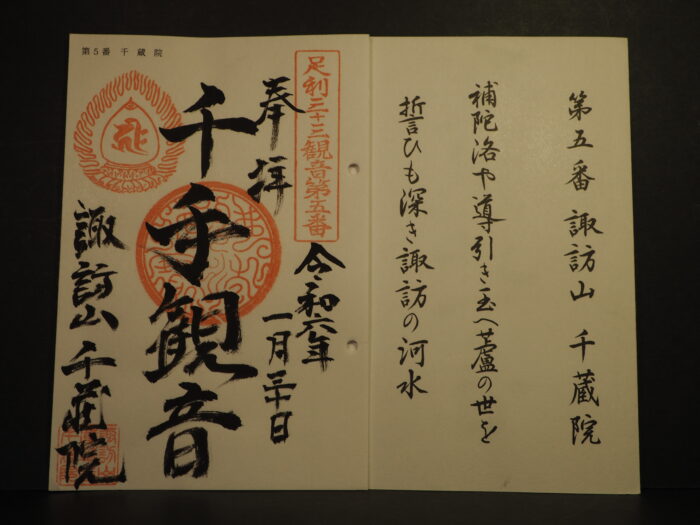 第五番 諏訪山 千蔵院
補陀洛や導引き玉へ蘆の世を
誓ひも深き諏訪の河水
第5番 千蔵院
足利三十三観音第五番
奉拝
令和六年
一月三十日
千手観音
諏訪山 千蔵院